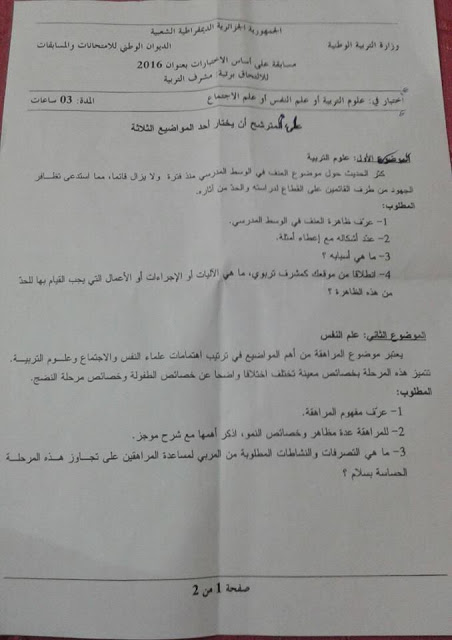 الجمهورية الجزائرية الديمقراطية الشعبية
وزارة التربية الوطنية الديوان الوطني للامتحانات والمسابقات
مسابقة على أساس الاختبارات بعنوان 2016
للالتحاق برتبة: مشرف التربية
اختبار في: علوم التربية أو علم النفس أو علم الاجتماع المدة: 03 ساعات
على المترشح أن يختار أحد المواضيع الثلاثة
الموضوع الأول: علوم التربية
كثر الحديث حول موضوع العنف في الوسط المدرسي منذ فترة ولا يزال قائما، مما استدعى تظافر
الجهود من طرف القائمين على القطاع لدراسته والحدّ من آثاره.
المطلوب:
1- عرّف ظاهرة العنف في الوسط المدرسي.
2- عدّد أشكاله مع إعطاء أمثلة.
3- ما هي أسبابه ؟
4- انطلاقا من موقعك كمشرف تربوي، ما هي الآليات أو الإجراءات أو الأعمال التي يجب القيام بها للحدّ
من هذه الظاهرة ؟
الموضوع الثاني: علم النفس
يعتبر موضوع المراهقة من أهم المواضيع في ترتيب اهتمامات علماء النفس والاجتماع وعلوم التربية.
تتميز هذه المرحلة بخصائص معينة تختلف اختلافا واضحا عن خصائص الطفولة وخصائص مرحلة النضج.
المطلوب:
1- عرّف مفهوم المراهقة.
2- للمراهقة عدة مظاهر وخصائص النمو، اذكر أهمها مع شرح موجز.
3- ما هي التصرفات والنشاطات المطلوبة من المربي لمساعدة المراهقين على تجاوز هذه المرحلة
الحساسة بسلام ؟
صفحة 1 من 2